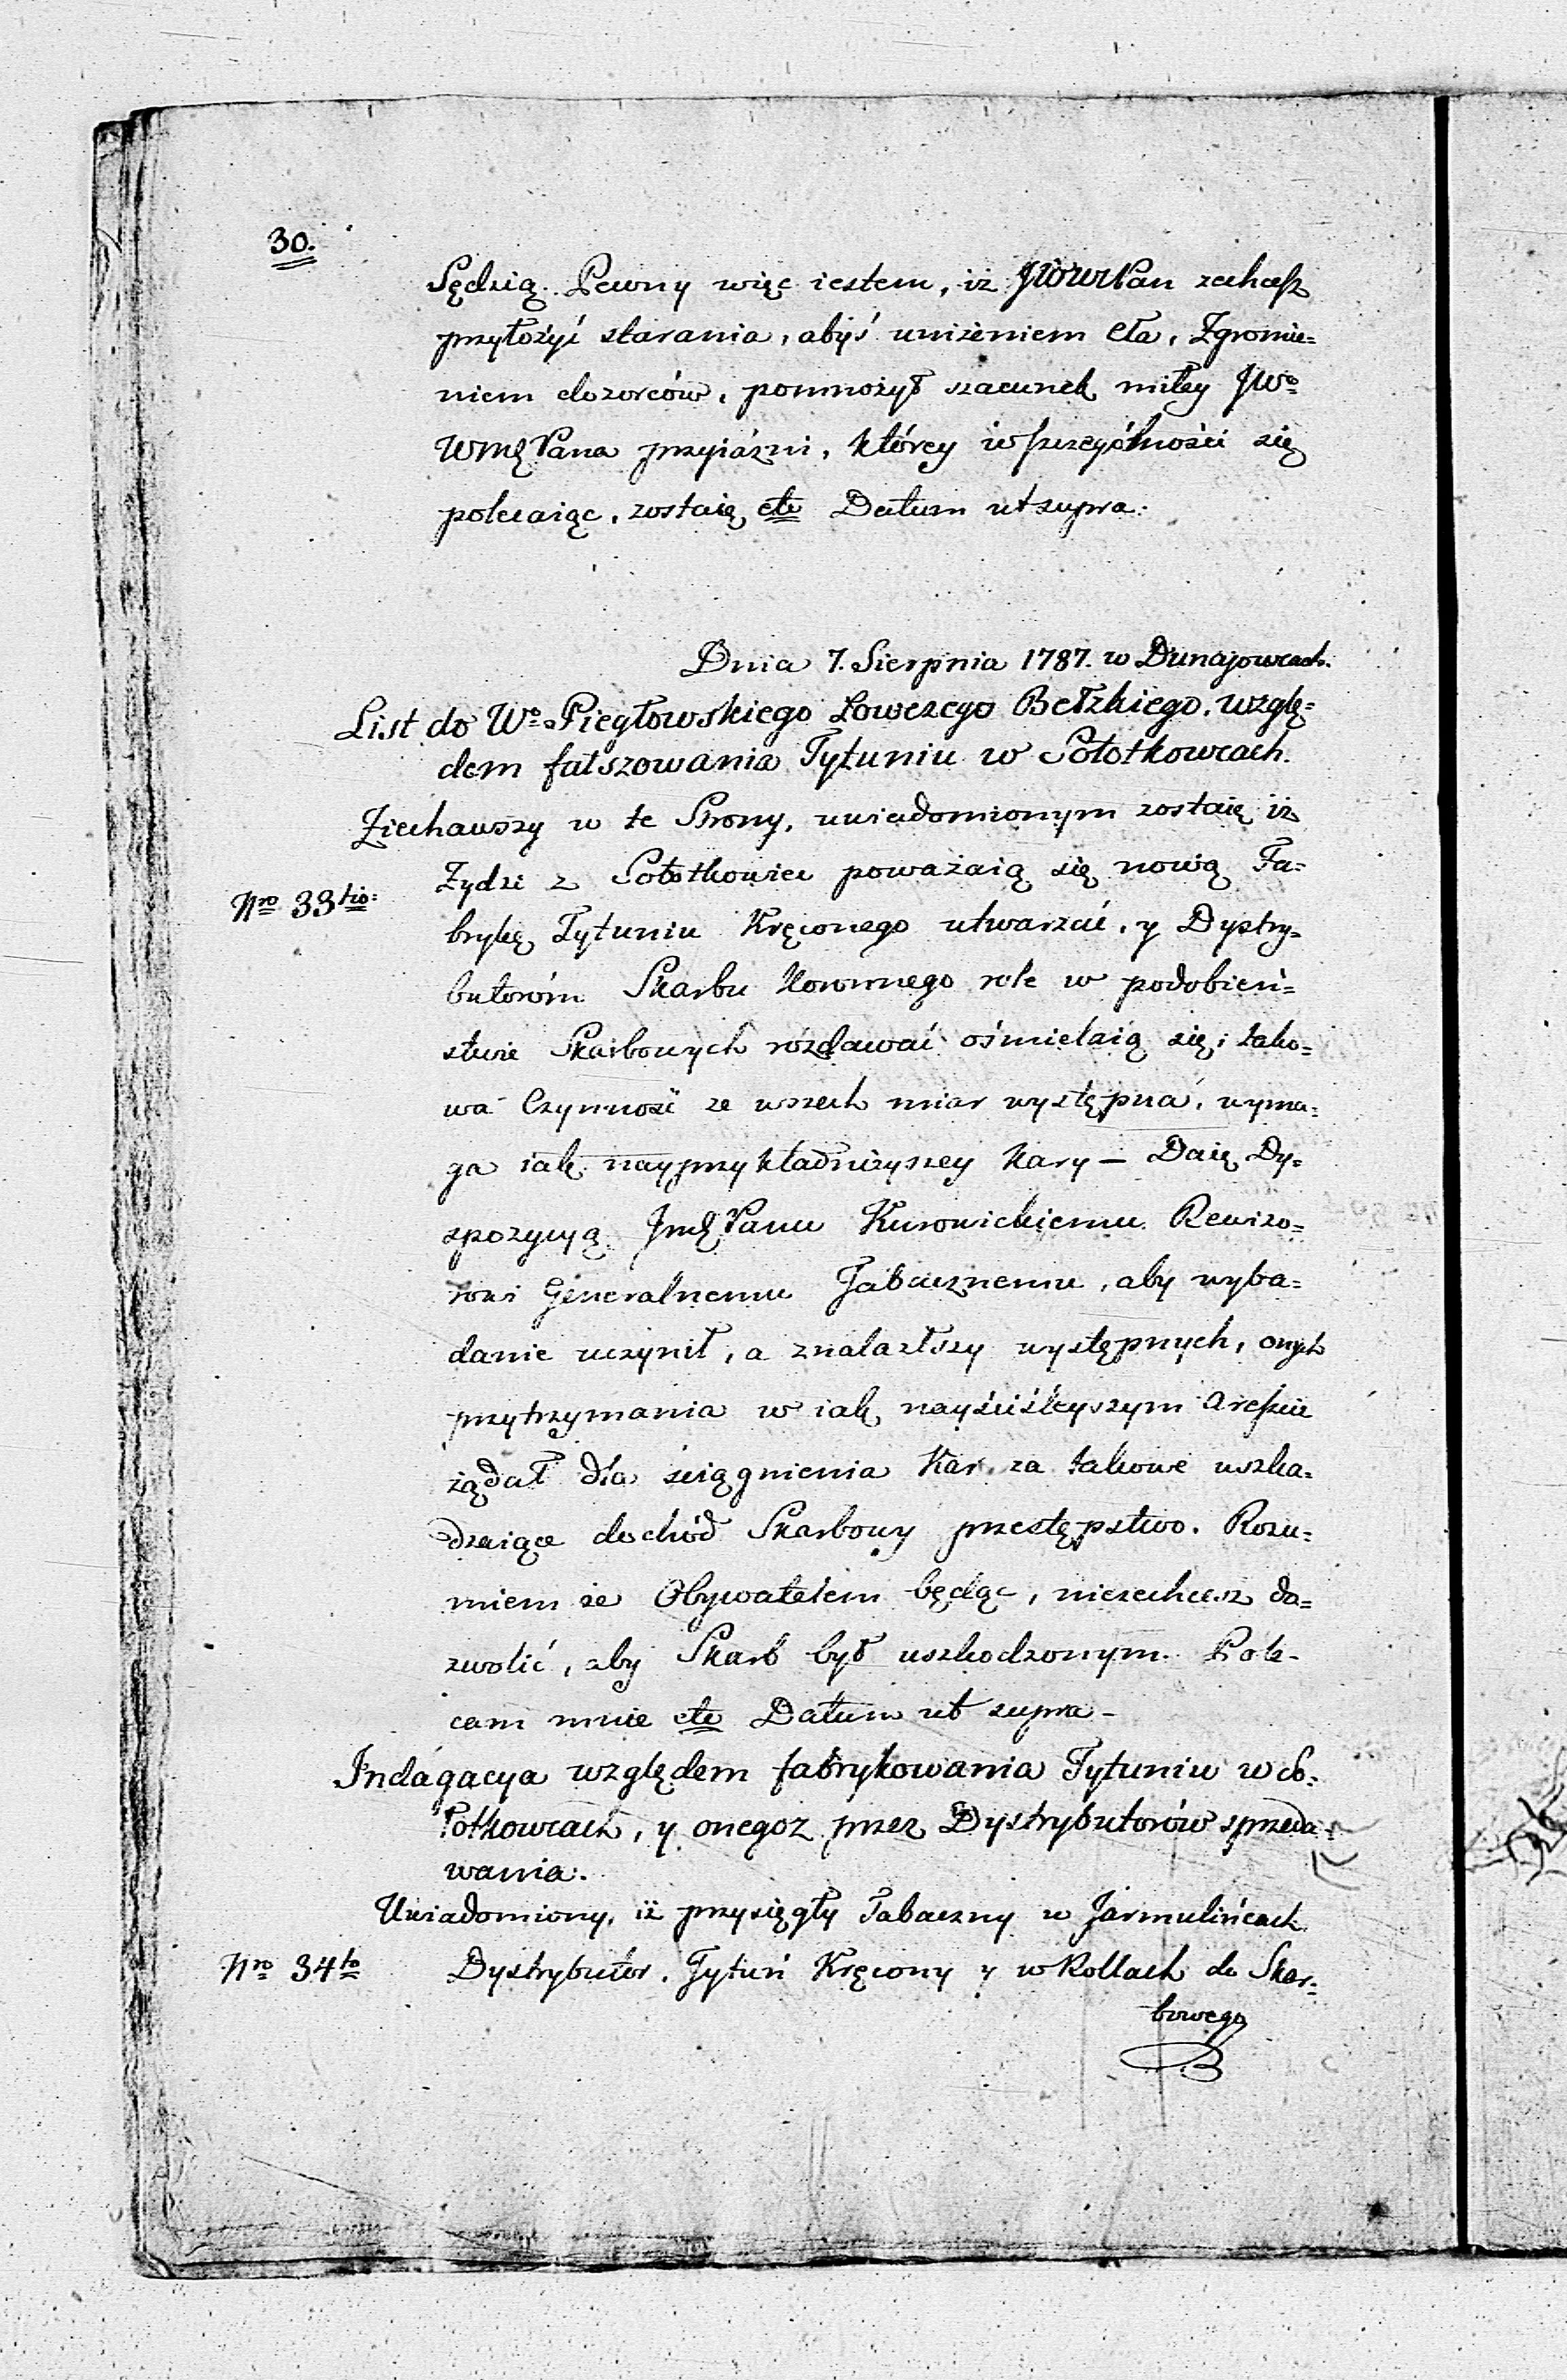 30.
Sędzią. Pewny więc iestem, iż JWWPan zechcesz
przyłożyć starania, abyś uniżeniem Cła, Zgromie=
niem dozorców, pomnożył szacunek miłey JWo
WMć Pana przyiaźni, którey w szczegòlności się
polecaiąc, zostaię etc Datum ut supra.
Dnia 7. Sierpnia 1787. w Dunajowcach.
List do Wo Piegłowskiego Łowczego Bełzkiego, wzglę=
dem fałszowania Tytuniu w Sołotkowcach.
Ziechawszy w te Strony, uwiadomionym zostaię iż
Żydzi z Sołotkowiec poważaią się nową Fa=
Nro 33tio:
brykę Tytuniu Kręconego utwarzać, y Dystry=
butoróm Skarbu Koronnego role w podobień=
stwie Skarbowych rozdawać ośmielaią się; tako=
wa Czynność ze wszech miar występna, wyma=
ga iak nayprzykładnieyszey Kary — Daię Dy=
spozycyą Jmć Panu Kurowickiemu Rewizo=
rowi Generalnemu Tabacznemu, aby wyba=
danie uczynił, a znalazłszy występnych, onych
przytrzymania w iak nayściśleyszym areszcie
żądał dla ściągnienia Kar za takowe uszka=
dzaiące dochód Skarbowy przestępstwo. Rozu=
miem że Obywatelem będąc, niezechcesz do=
zwolić, aby Skarb był uszkodzonym. Pole=
cam mnie etc Datum ut supra —
Indagacya względem fabrykowania Tytuniu w So=
łotkowcach, y onegoż przez Dystrybutorów sprzeda=
wania.
Uwiadomiony, iż przysięgły Tabaczny w Jarmulińcach
Nro 34to
Dystrybutor, Tytuń Kręcony y w Rollach do Skar=
bowego